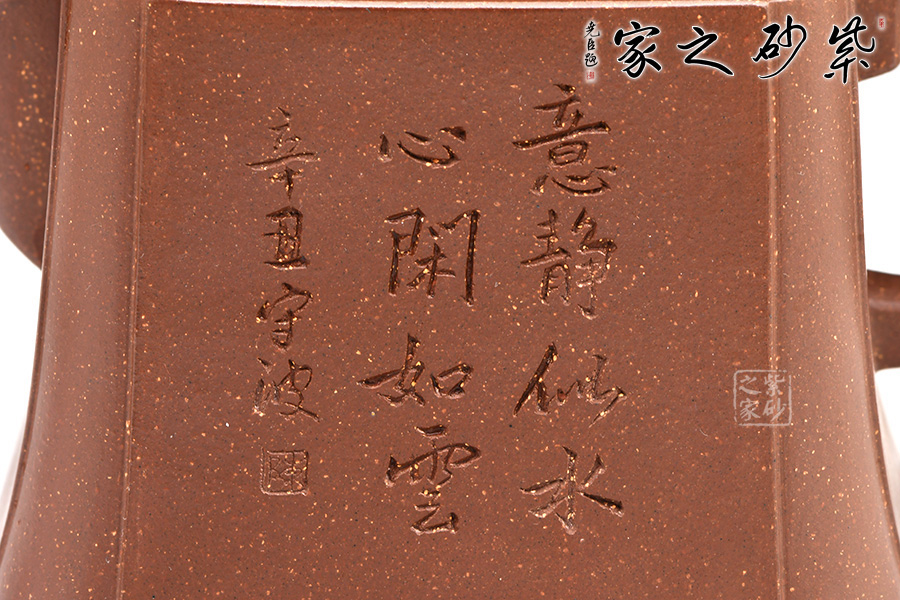 家之砂紫
尧臣题
意静似水
心閑如雲
辛丑守波
紫砂之家